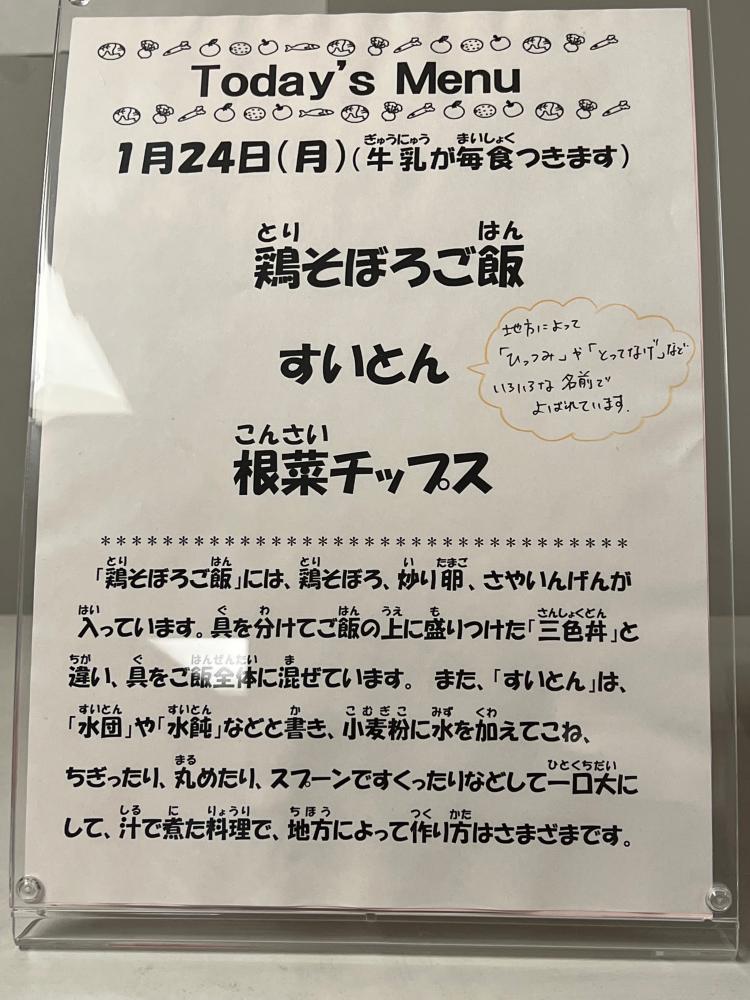 Today's Menu
1月24日(月)(牛乳が毎食つきます)
鶏そぼろご飯
すいとん
地方によって
「ひっつみ」や「とってなげ」など
いろいろな 名前で
よばれています.
根菜チップス
***********************************
「鶏そぼろご飯」には、鶏そぼろ、炒り卵、さやいんげんが
入っています。具を分けてご飯の上に盛りつけた「三色丼」と
違い、具をご飯全体に混ぜています。 また、「すいとん」は、
「水団」や「水飩」などと書き、小麦粉に水を加えてこね、
ちぎったり、丸めたり、スプーンですくったりなどして一口大に
して、汁で煮た料理で、地方によって作り方はさまざまです。